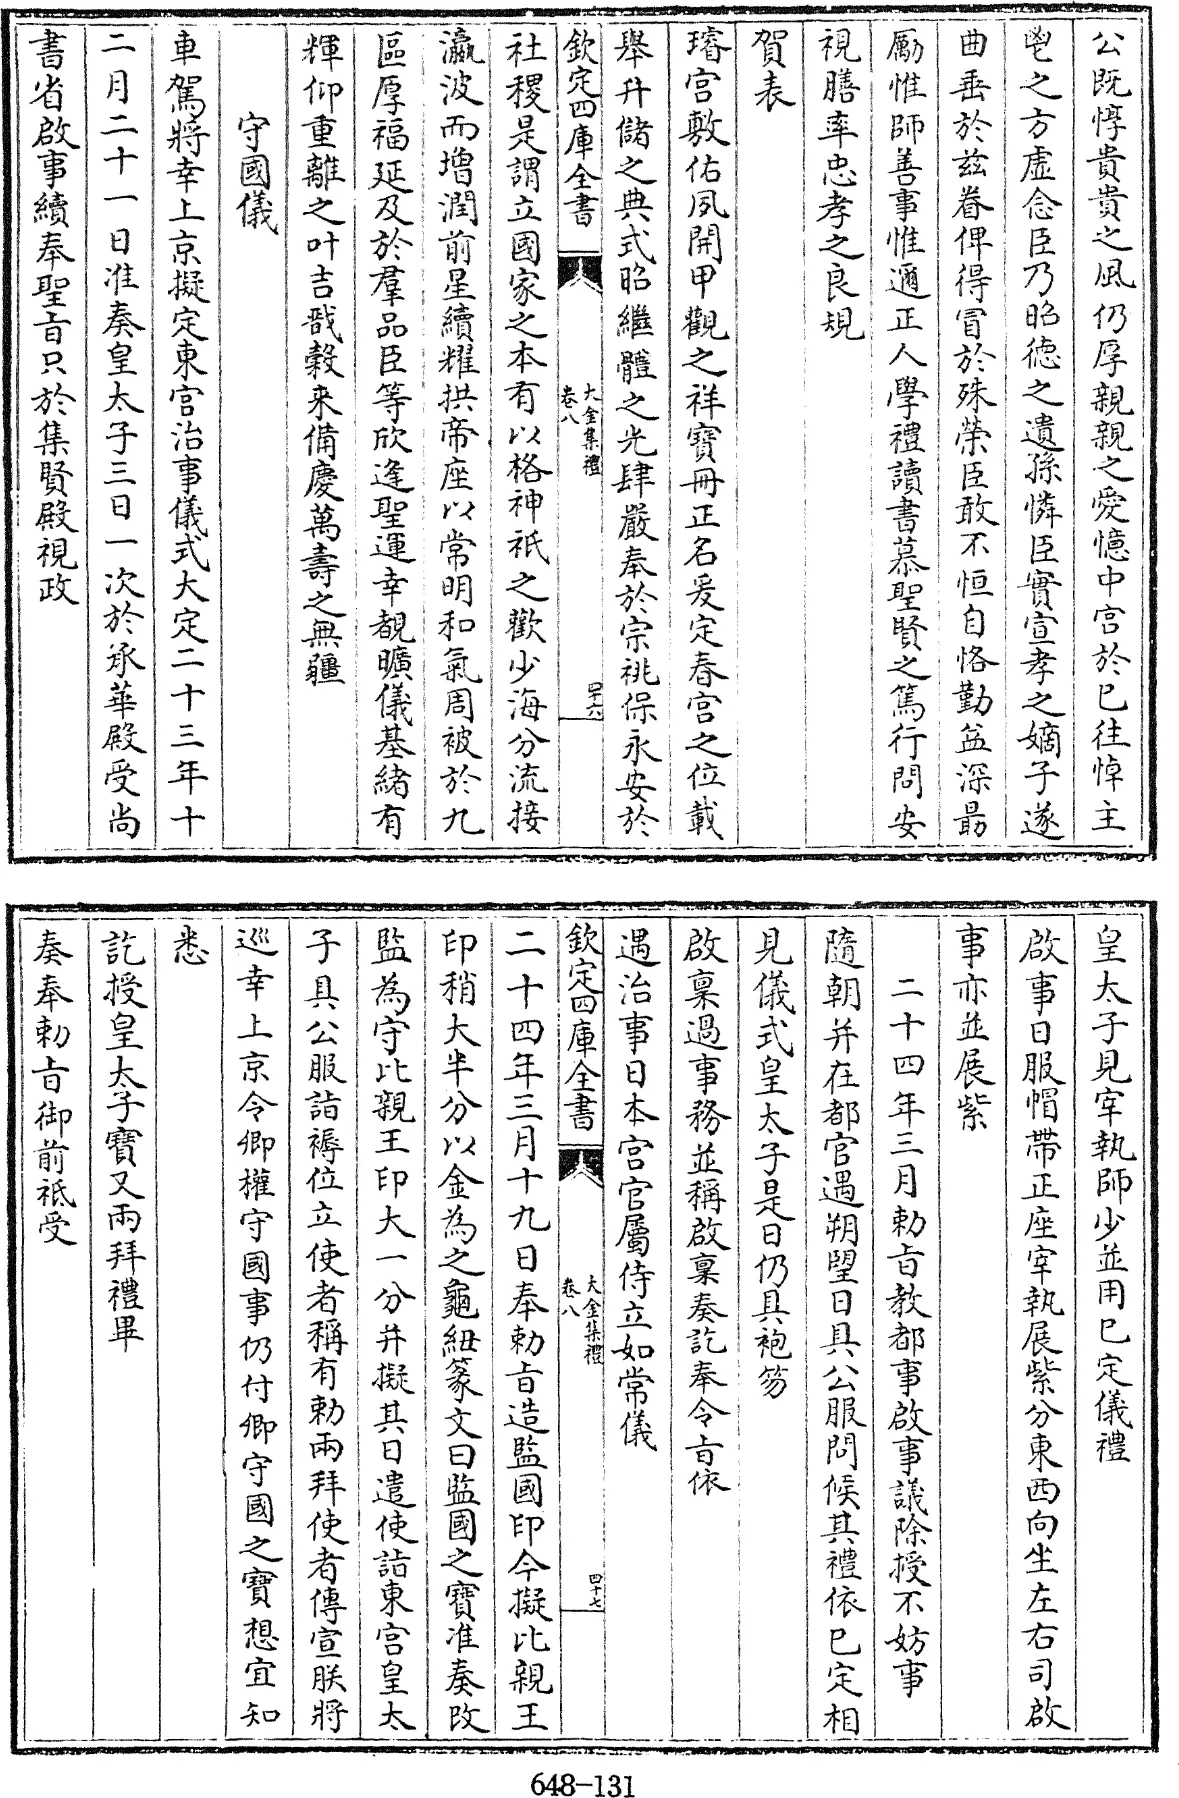 公既惇貴貴之風仍厚親親之愛憶中宮於已往悼主
鬯之方虛念臣乃昭德之遺孫憐臣實宣孝之嫡子遂
曲垂於兹眷俾得冒於殊榮臣敢不恒自恪勤益深朂
勵惟師善事惟邇正人學禮讀書慕聖賢之篤行問安
視膳率忠孝之良規
賀表
璿宮敷佑夙開甲觀之祥寶冊正名爰定春宮之位載
舉升儲之典式昭繼體之光肆嚴奉於宗祧保永安於
欽定四庫全書
大金集禮
卷八
四十六
社稷是謂立國家之本有以格神祇之歡少海分流接
瀛波而增潤前星續耀拱帝座以常明和氣周被於九
區厚福延及於羣品臣等欣逢聖運幸覩曠儀基緒有
輝仰重離之叶吉戩穀來備慶萬壽之無疆
守國儀
車駕將幸上京擬定東宮治事儀式大定二十三年十
二月二十一日准奏皇太子三日一次於承華殿受尚
書省啟事續奉聖旨只於集賢殿視政
皇太子見宰執師少並用已定儀禮
啟事日服帽帶正座宰執展紫分東西向坐左右司啟
事亦並展紫
二十四年三月勅旨教都事啟事議除授不妨事
隨朝并在都官遇朔望日具公服問候其禮依已定相
見儀式皇太子是日仍具袍笏
啟稟過事務並稱啟稟奏訖奉令旨依
遇治事日本宮官屬侍立如常儀
欽定四庫全書
大金集禮
卷八
四十七
二十四年三月十九日奉勅旨造監國印今擬比親王
印稍大半分以金為之龜紐篆文曰監國之寶准奏改
監為守比親王印大一分并擬其日遣使詣東宮皇太
子具公服詣褥位立使者稱有勅兩拜使者傳宣朕將
巡幸上京令卿權守國事仍付卿守國之寶想宜知
悉
訖授皇太子寶又兩拜禮畢
奏奉勅旨御前祗受
648-131